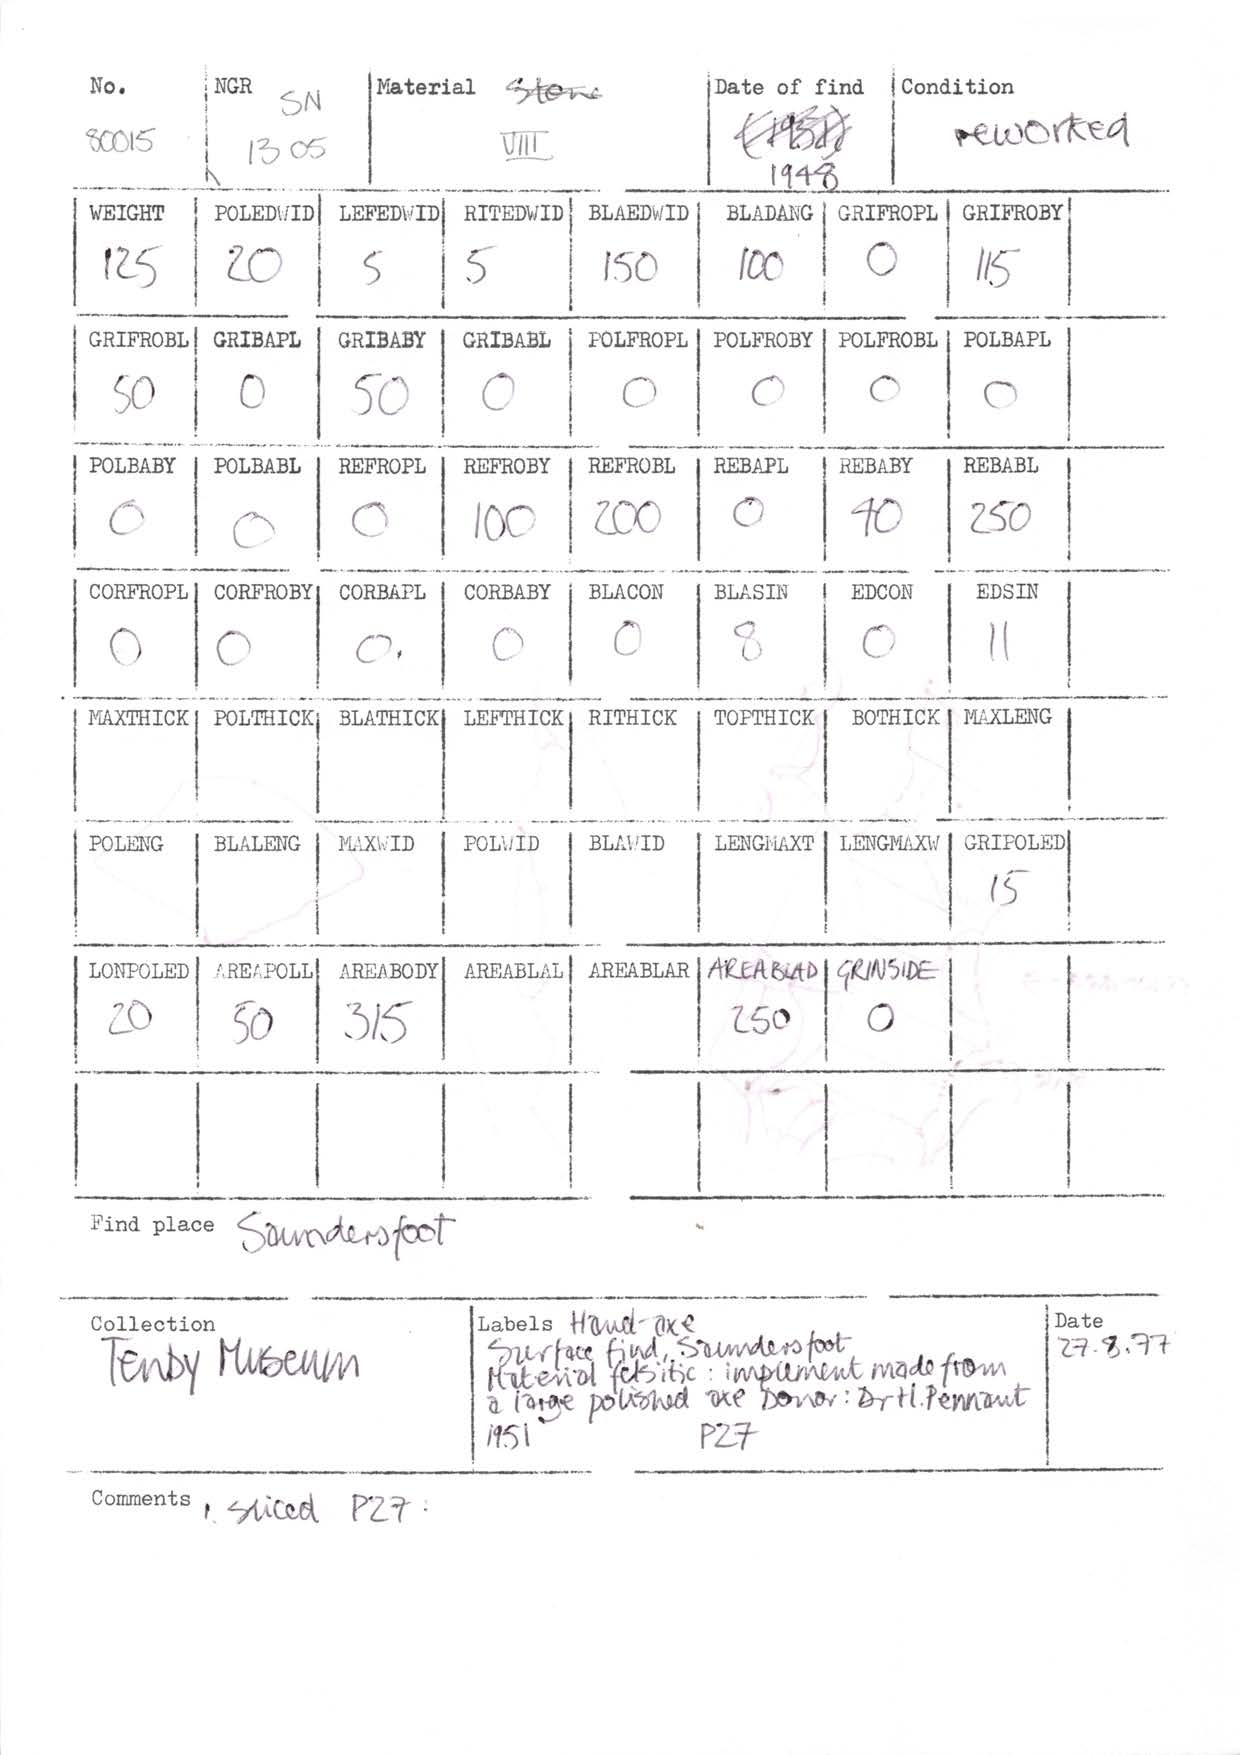 No. NGR SN Material Stone Date of find Condition
80015 13 05 VIII (1951) reworked
1948
WEIGHT POLEDWID LEFEDWID RITEDWID BLAEDWID BLADANG GRIFROPL GRIFROBY
125 20 5 5 150 100 0 115
GRIFROBL GRIBAPL GRIBABY GRIBABL POLFROPL POLFROBY POLFROBL POLBAPL
50 0 50 0 0 0 0 0
POLBABY POLBABL REFROPL REFROBY REFROBL REBAPL REBABY REBABL
0 0 0 100 200 0 40 250
CORFROPL CORFROBY CORBAPL CORBABY BLACON BLASIN EDCON EDSIN
0 0 0. 0 0 8 0 11
MAXTHICK POLTHICK BLATHICK LEFTHICK RITHICK TOPTHICK BOTHICK MAXLENG
POLENG BLALENG MAXWID POLWID BLAWID LENGMAXT LENGMAXW GRIPOLED
15
LONPOLED AREAPOLL AREABODY AREABLAL AREABLAR AREABLAD GRINSIDE
20 50 315 250 0
Find place Saundersfoot
Collection Labels Hand-axe Date
Tenby Museum Surface find, Saundersfoot 27.8.77
Material felsitic : implement made from
a large polished axe Donor: Dr H. Pennant
1951 P27
Comments , sliced P27 :